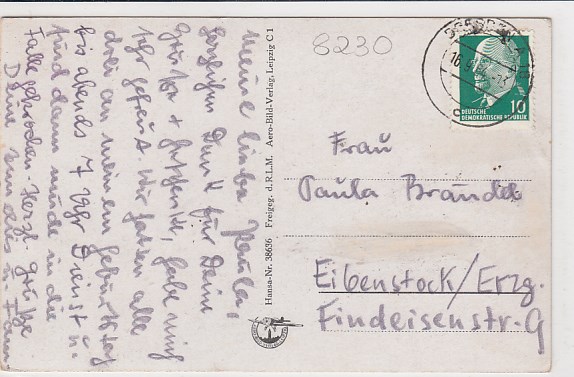 Meine liebe Paula,
herzlichen Dank für Deine
Grüße + Geschenk, habe mich
sehr gefreut. Wir hatten alle
drei an meinem Geburtstag
bis abends 7 Uhr Dienst u.
sind dann müde in die
Falle gekrochen. Herzl. Grüße
Deine
Hansa-Nr. 38636 Freigeg. d. R.L.M. Aero-Bild-Verlag, Leipzig C 1
8230
10
DEUTSCHE
DEMOKRATISCHE REPUBLIK
Frau
Paula Brändel
Eibenstock/Erzg.
Findeisenstr. 9